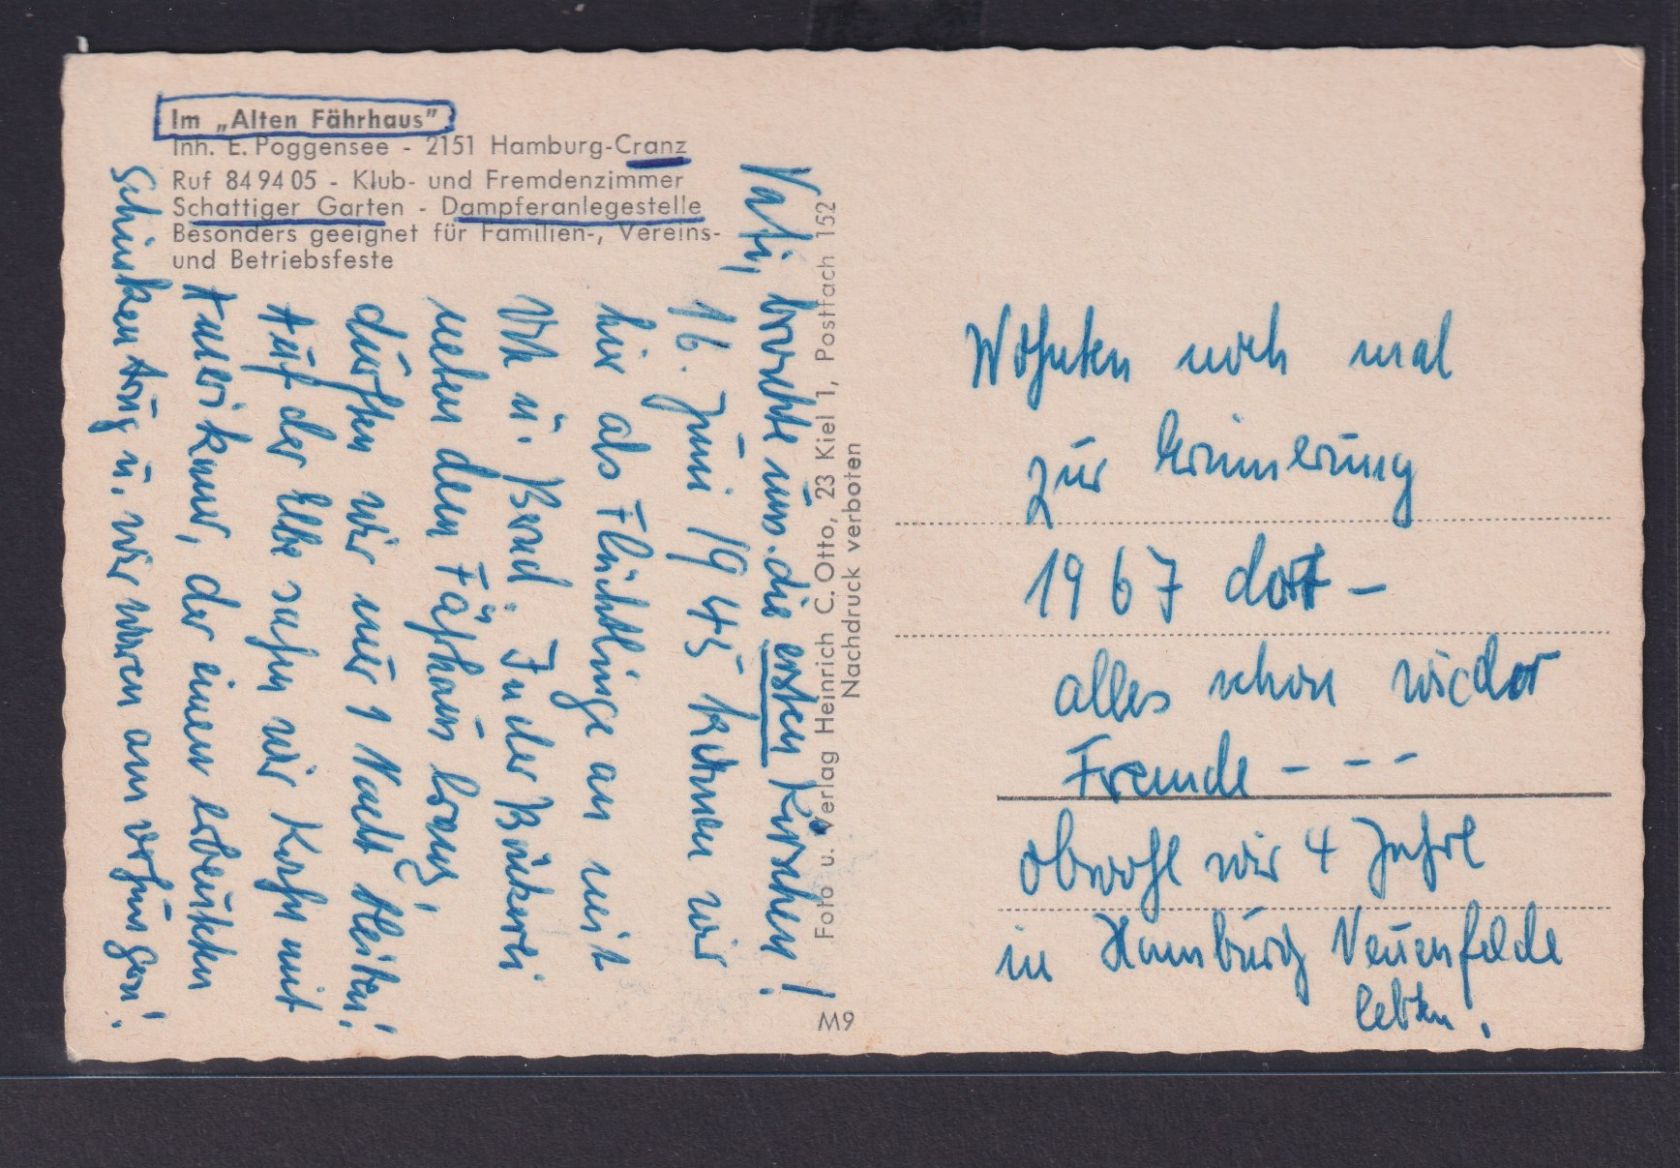 Im „Alten Fährhaus"
Inh. E. Poggensee - 2151 Hamburg-Cranz
Ruf 84 94 05 - Klub- und Fremdenzimmer
Schattiger Garten - Dampferanlegestelle
Besonders geeignet für Familien-, Vereins-
und Betriebsfeste
Vati, brachte uns die ersten Kirschen!
16. Juni 1945 kamen wir
hier als Flüchtlinge an mit
u. Bernd. In der Bäckerei
neben dem Fährhaus Cranz,
durften wir nur 1 Nacht bleiben!
Auf der Elbe sahen wir Kahn mit
Amerikaner, der einen erbeuteten
Schinken trug u. wir waren am verhungern!
Foto u. Verlag Heinrich C. Otto, 23 Kiel 1, Postfach 152
Nachdruck verboten
M9
Wohnten noch mal
zur Erinnerung
1967 dort –
alles schon wieder
Fremde – – – –
obwohl wir 4 Jahre
in Hamburg Neuenfelde
lebten.